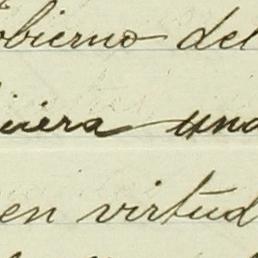 obierno del
iera una
en virtud